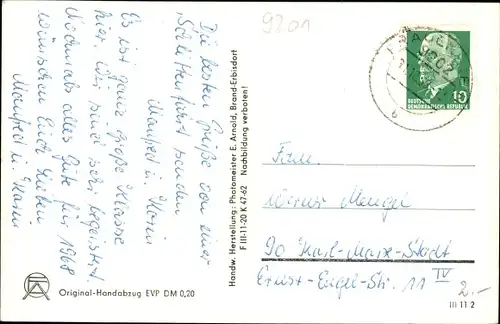 9201
Die besten Grüße von einer
Schlittenfahrt senden
Manfred u. Karin
Es ist ganz große Klasse
hier. Wir sind sehr begeistert.
Nochmals alles Gute für 1968
wünschen Euch Lieben
Manfred u. Karin
Handw. Herstellung: Photomeister E. Arnold, Brand-Erbisdorf
F III-11-20 K 47-62 Nachbildung verboten!
10
DEUTSCHE
DEMOKRATISCHE REPUBLIK
Fam.
Werner Mengel
90 Karl-Marx-Stadt
Ernst-Engel-Str. 11 IV
2.-
Original-Handabzug EVP DM 0,20
III 11 2